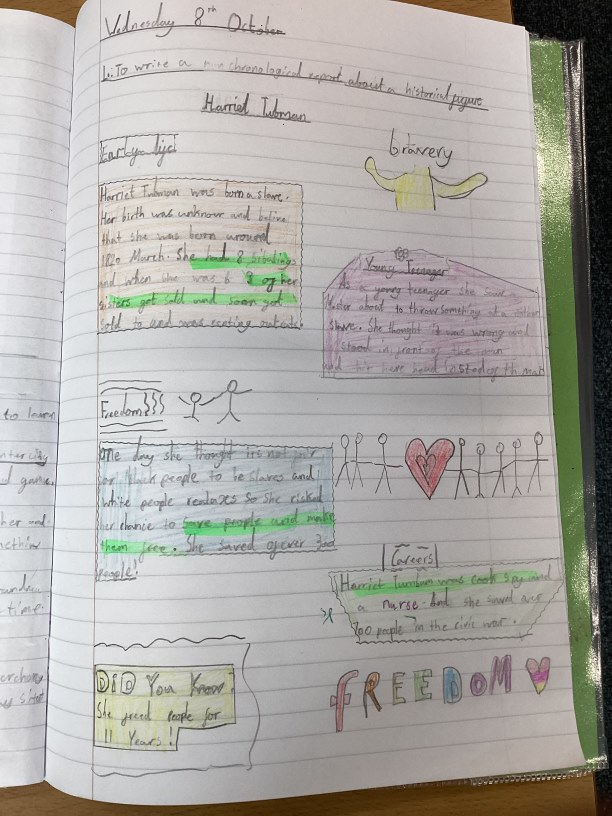 Wednesday 8th October
L: To write a chronological report about a historical figure
Harriet Tubman
Early life
Harriet Tubman was born a slave.
Her birth was unknown and
that she was born around
1820 March. She had 8
and when she was 6 3 of her
sisters got sold and soon got
sold to and was outside.
bravery
Young Teenager
As a young teenager she saw
about to throw something at a
slave. She thought it was wrong and
stood in front of the
and hit here head insted of th man
Freedom
One day she thought its not fair
for black people to be slaves and
white people so she risked
her chance to save people and make
them free. She saved over 300
people!
Careers
Harriet was cook spy and
a nurse. And she saved
700 people in the civil war.
DID You Know!
She freed people for
11 Years!
FREEDOM
to learn
game.
her and
time.